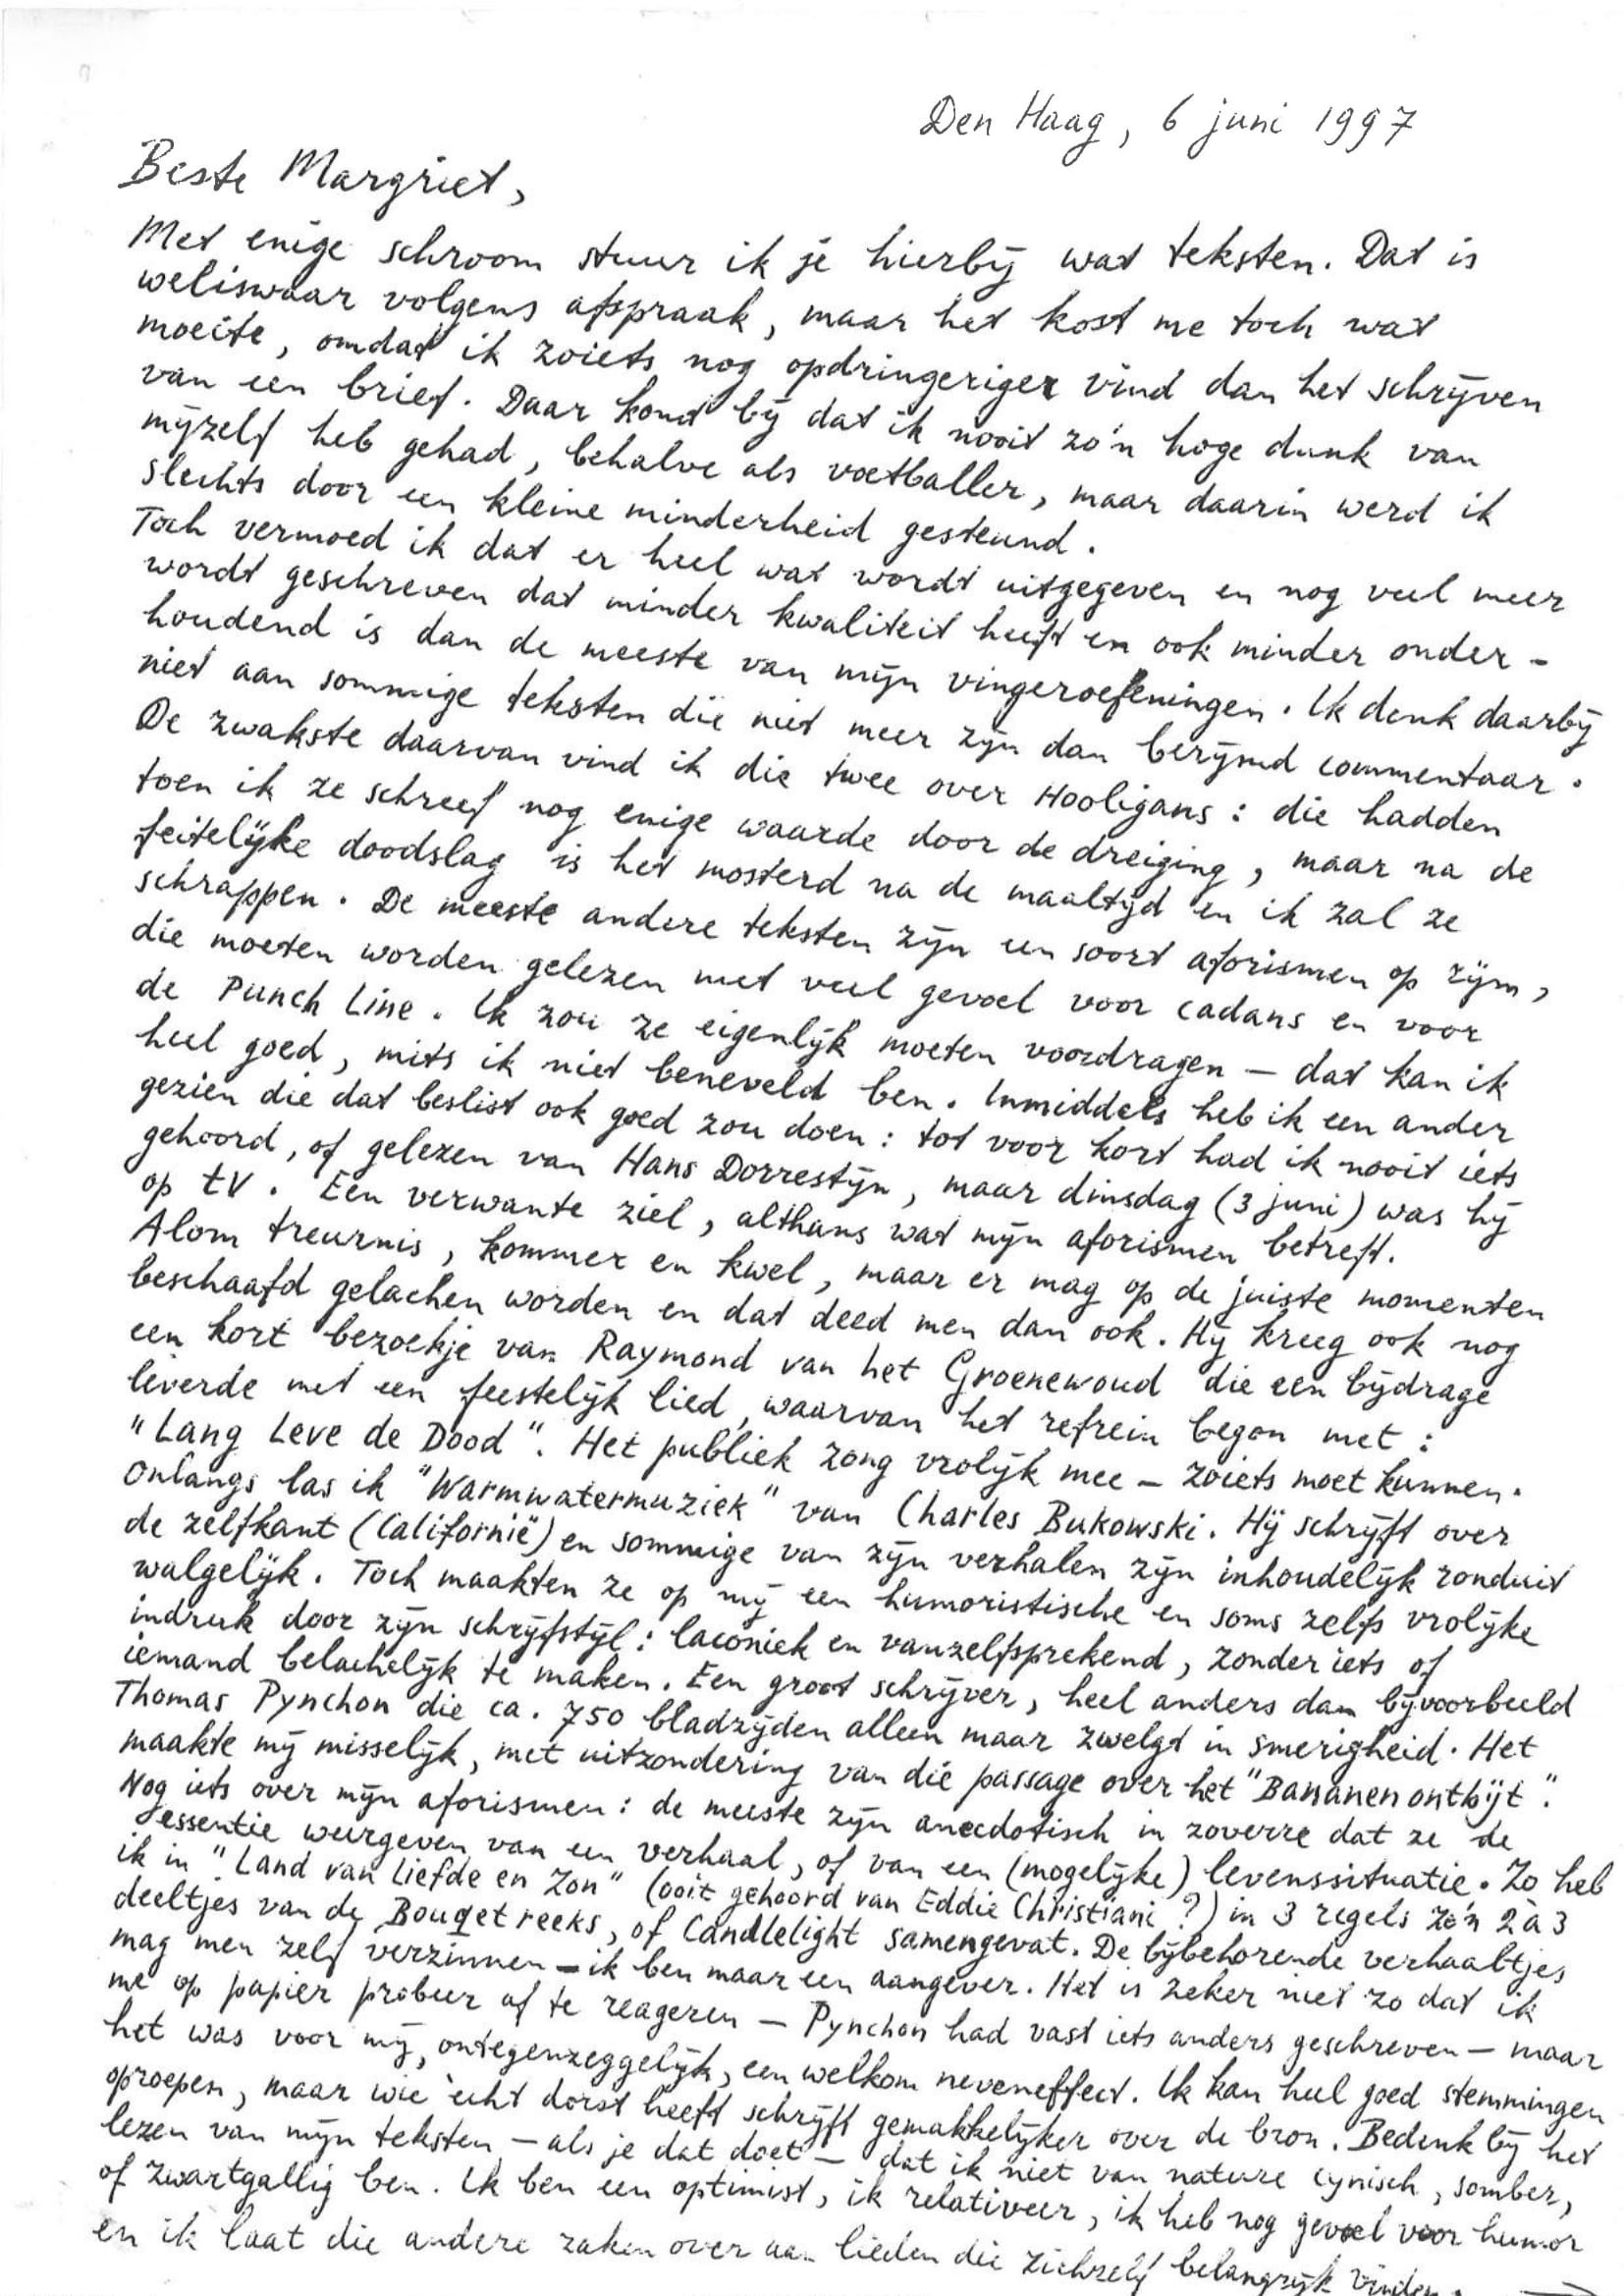 Den Haag, 6 juni 1997
Beste Margriet,
Met enige schroom stuur ik je hierbij wat teksten. Dat is
weliswaar volgens afspraak, maar het kost me toch wat
moeite, omdat ik zoiets nog opdringeriger vind dan het schrijven
van een brief. Daar komt bij dat ik nooit zo'n hoge dunk van
mijzelf heb gehad, behalve als voetballer, maar daarin werd ik
slechts door een kleine minderheid gesteund.
Toch vermoed ik dat er heel wat wordt uitgegeven en nog veel meer
wordt geschreven dat minder kwaliteit heeft en ook minder onder-
houdend is dan de meeste van mijn vingeroefeningen. Ik denk daarbij
niet aan sommige teksten die niet meer zijn dan berijmd commentaar.
De zwakste daarvan vind ik die twee over Hooligans: die hadden
toen ik ze schreef nog enige waarde door de dreiging, maar na de
feitelijke doodslag is het mosterd na de maaltijd en ik zal ze
schrappen. De meeste andere teksten zijn een soort aforismen op rijm,
die moeten worden gelezen met veel gevoel voor cadans en voor
de Punch Line. Ik zou ze eigenlijk moeten voordragen – dat kan ik
heel goed, mits ik niet beneveld ben. Inmiddels heb ik een ander
gezien die dat beslist ook goed zou doen: tot voor kort had ik nooit iets
gehoord, of gelezen van Hans Dorrestijn, maar dinsdag (3 juni) was hij
op tv. Een verwante ziel, althans wat mijn aforismen betreft.
Alom treurnis, kommer en kwel, maar er mag op de juiste momenten
beschaafd gelachen worden en dat deed men dan ook. Hij kreeg ook nog
een kort bezoekje van Raymond van het Groenewoud die een bijdrage
leverde met een feestelijk lied, waarvan het refrein begon met:
"Lang Leve de Dood". Het publiek zong vrolijk mee – zoiets moet kunnen.
Onlangs las ik "Warmwatermuziek" van Charles Bukowski. Hij schrijft over
de zelfkant (Californië) en sommige van zijn verhalen zijn inhoudelijk ronduit
walgelijk. Toch maakten ze op mij een humoristische en soms zelfs vrolijke
indruk door zijn schrijfstijl: laconiek en vanzelfsprekend, zonder iets of
iemand belachelijk te maken. Een groot schrijver, heel anders dan bijvoorbeeld
Thomas Pynchon die ca. 750 bladzijden alleen maar zwelgt in smerigheid. Het
maakte mij misselijk, met uitzondering van die passage over het "Bananenontbijt".
Nog iets over mijn aforismen: de meeste zijn anecdotisch in zoverre dat ze de
essentie weergeven van een verhaal, of van een (mogelijke) levenssituatie. Zo heb
ik in "Land van Liefde en Zon" (ooit gehoord van Eddie Christiani?) in 3 regels zo'n 2 à 3
deeltjes van de Bouqetreeks, of Candlelight samengevat. De bijbehorende verhaaltjes
mag men zelf verzinnen – ik ben maar een aangever. Het is zeker niet zo dat ik
me op papier probeer af te reageren – Pynchon had vast iets anders geschreven – maar
het was voor mij, ontegenzeggelijk, een welkom neveneffect. Ik kan heel goed stemmingen
oproepen, maar wie echt dorst heeft schrijft gemakkelijker over de bron. Bedenk bij het
lezen van mijn teksten – als je dat doet – dat ik niet van nature cynisch, somber,
of zwartgallig ben. Ik ben een optimist, ik relativeer, ik heb nog gevoel voor humor
en ik laat die andere zaken over aan lieden die zichzelf belangrijk vinden.